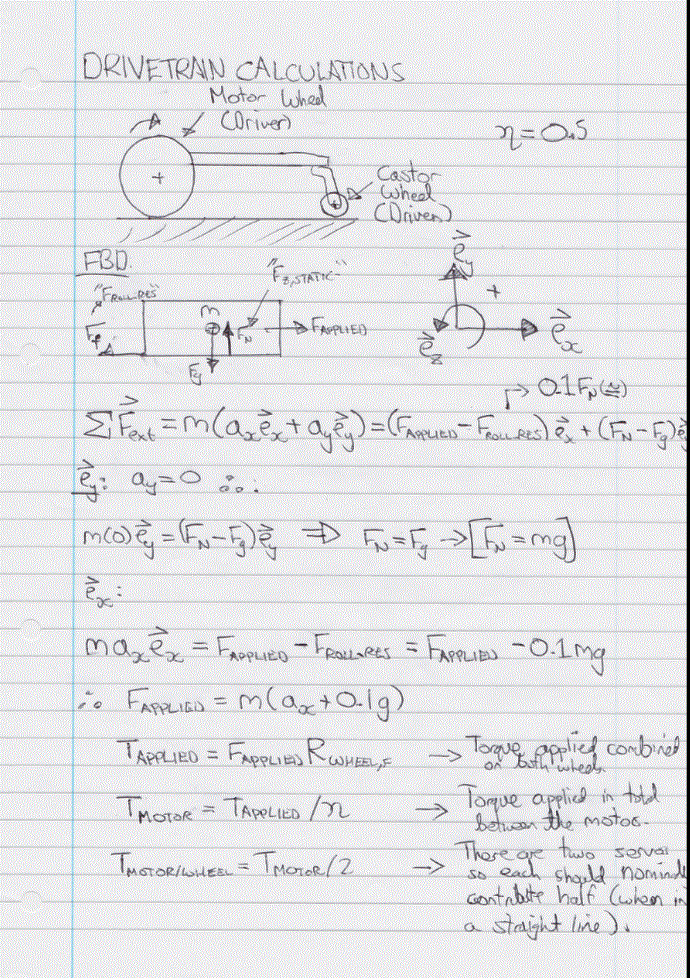 DRIVETRAIN CALCULATIONS
Motor Wheel
(Driver)
η = 0.5
Castor
Wheel
(Driven)
FBD.
"F_ROLL.RES"
"F_Z,STATIC"
m
F_N
F_APPLIED
F_g
e⃗_y
+
e⃗_x
e⃗_z
→ 0.1F_N
ΣF⃗_ext = m(a_x e⃗_x + a_y e⃗_y) = (F_APPLIED - F_ROLL.RES) e⃗_x + (F_N - F_g) e⃗
e⃗_y: a_y = 0 ∴
m(0)e⃗_y = (F_N - F_g)e⃗_y ⇒ F_N = F_g → [F_N = mg]
e⃗_x:
m a_x e⃗_x = F_APPLIED - F_ROLL.RES = F_APPLIED - 0.1mg
∴ F_APPLIED = m(a_x + 0.1g)
T_APPLIED = F_APPLIED R_WHEEL,F → Torque applied combined
on both wheels.
T_MOTOR = T_APPLIED / η → Torque applied in total
between the motors.
T_MOTOR/WHEEL = T_MOTOR / 2 → There are two servos
so each should
contribute half (when in
a straight line).